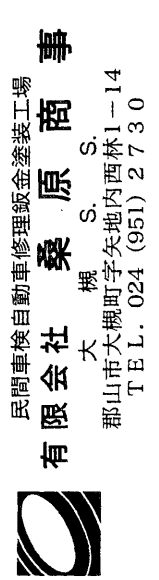 民間車検自動車修理鈑金塗装工場
有限会社 桑原商事
大槻 S. S.
郡山市大槻町字矢地内西林1−14
TEL. 024 (951) 2730